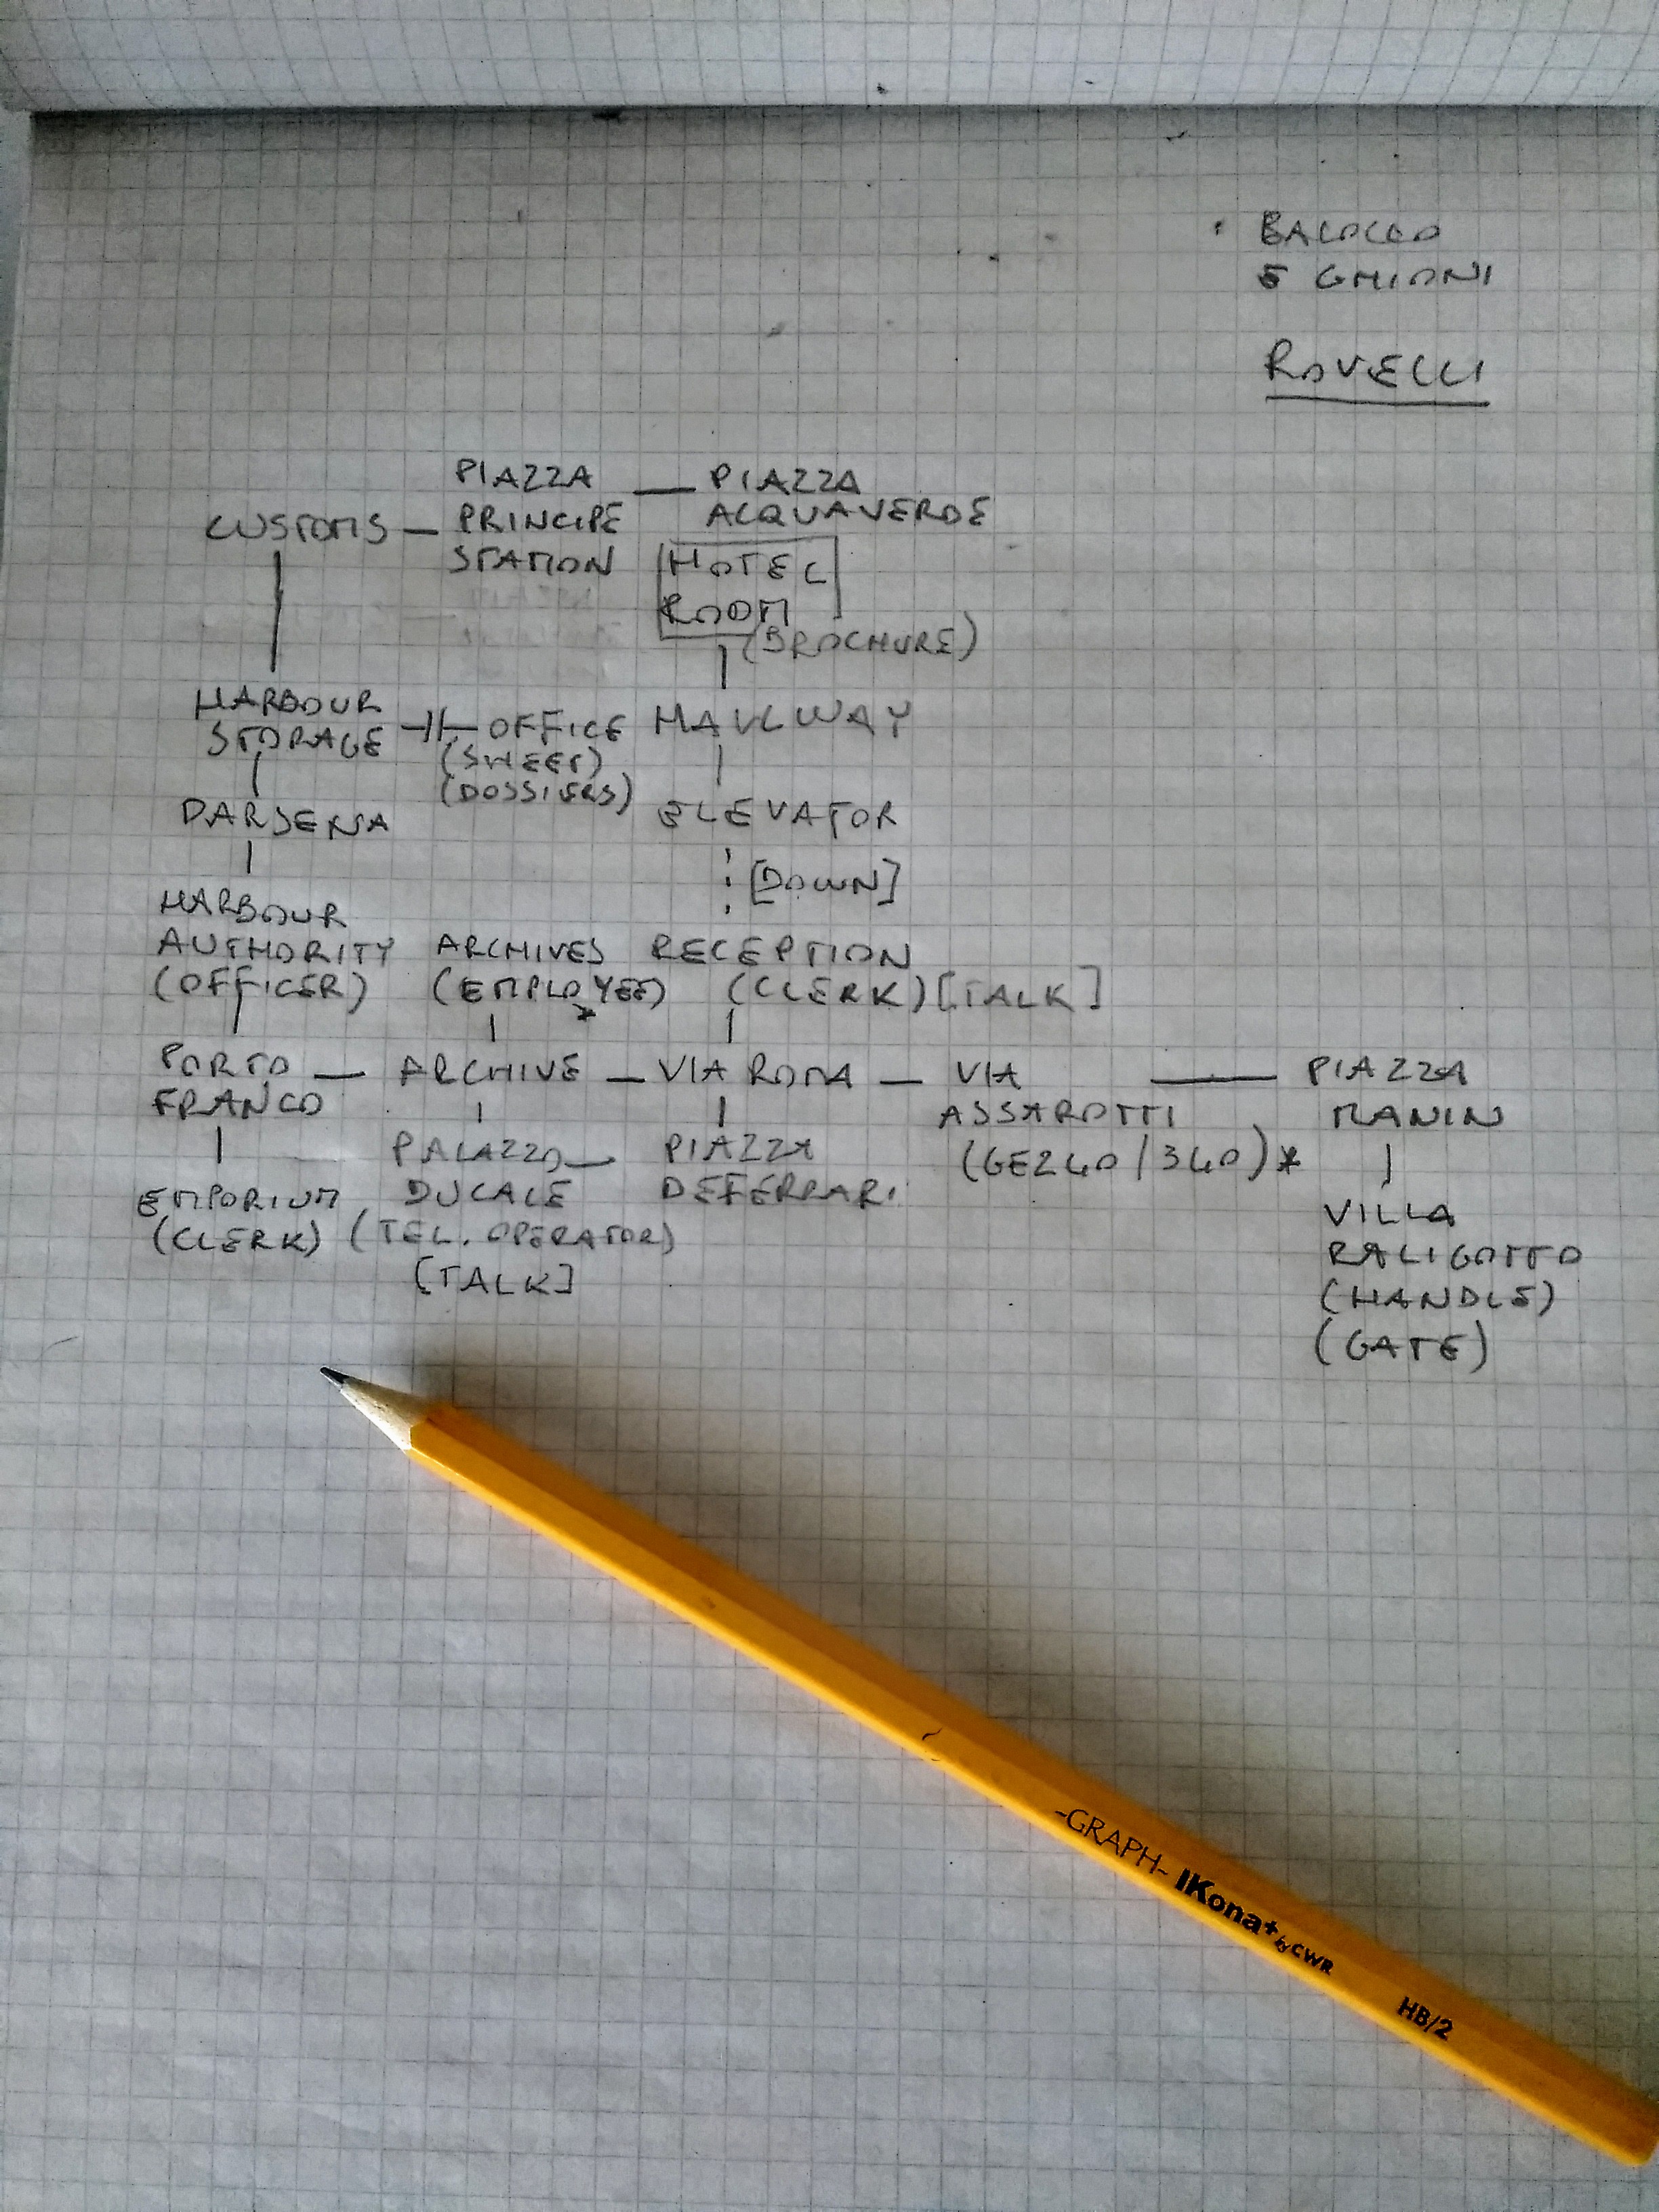 BALOCCO
E GHIONI
ROVELLI
PIAZZA — PIAZZA
CUSTOMS — PRINCIPE ACQUAVERDE
STATION HOTEL
ROOM
(BROCHURE)
HARBOUR
STORAGE OFFICE HALLWAY
(SHEET)
(DOSSIERS)
DARSENA ELEVATOR
[DOWN]
HARBOUR
AUTHORITY ARCHIVES RECEPTION
(OFFICER) (EMPLOYEE) (CLERK) [TALK]
*
PORTO — ARCHIVE — VIA ROMA — VIA — PIAZZA
FRANCO ASSAROTTI MANIN
PALAZZO — PIAZZA (GE240/340)*
EMPORIUM DUCALE DEFERRARI VILLA
(CLERK) (TEL. OPERATOR) RALIGOTTO
[TALK] (HANDLE)
(GATE)
-GRAPH- IKona+ by CWR HB/2